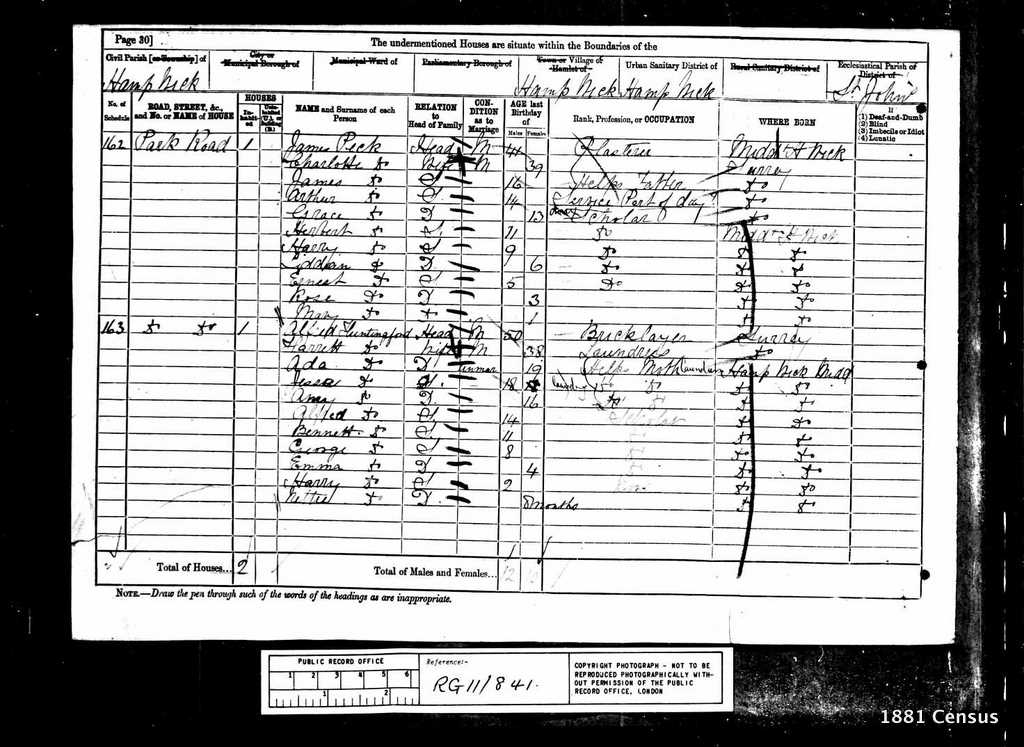 Page 30]
The undermentioned Houses are situate within the Boundaries of the
Civil Parish [or Township] of
City or Municipal Borough of
Municipal Ward of
Parliamentary Borough of
Town or Village of Hamlet of
Urban Sanitary District of
Rural Sanitary District of
Ecclesiastical Parish of District of
Hamp Wick Hamp Wick Hamp Wick St John's
No. of Schedule
ROAD, STREET, &c., and No. or NAME of HOUSE
HOUSES
Inhabited
Uninhabited (U.), or Building (B.)
NAME and Surname of each Person
RELATION to Head of Family
CONDITION as to Marriage
AGE last Birthday of
Males Females
Rank, Profession, or OCCUPATION
WHERE BORN
If
(1) Deaf-and-Dumb
(2) Blind
(3) Imbecile or Idiot
(4) Lunatic
162 Park Road 1 James Peck Head M 41 Plasterer Middx H Wick
Charlotte do Wife M 39 Surrey
James do S 16 Helps Father do
Arthur do S 14 Service Part of day do
Grace do D 13 Scholar do
Herbert do S 11 do Middx H Wick
Harry do S 9 do do do
do D 6 do do do
Ernest do S 5 do do do
Rose do D 3 do do
May do 1 do do
163 do do 1 Alfred Huntingford Head M 50 Bricklayer Surrey
do Wife M 38 Laundress do
Ada do D Unmar 19 Helps Moth laundress Hamp Wick Midd
do 18 do do do do
Amy do D 16 do do do do
Alfred do S 14 Scholar do do
Bennett do S 11 do do
George do S 8 do do
Emma do D 4 do do
Harry do S 2 do do
Nettie do D 8 months do do
Total of Houses... 2
Total of Males and Females... 12
NOTE.—Draw the pen through such of the words of the headings as are inappropriate.
PUBLIC RECORD OFFICE
1 2 3 4 5 6
1 2
Reference:-
RG 11/841.
COPYRIGHT PHOTOGRAPH - NOT TO BE
REPRODUCED PHOTOGRAPHICALLY WITH-
OUT PERMISSION OF THE PUBLIC
RECORD OFFICE, LONDON
1881 Census